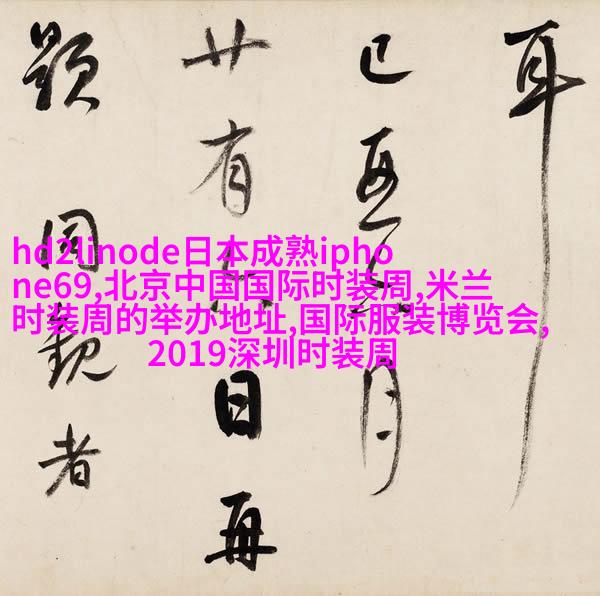 耳
己亥月
廿有日再
題同觀者
hd2linode日本成熟ipho
ne69,北京中国国际时装周,米兰
时装周的举办地址,国际服装博览会,
2019深圳时装周